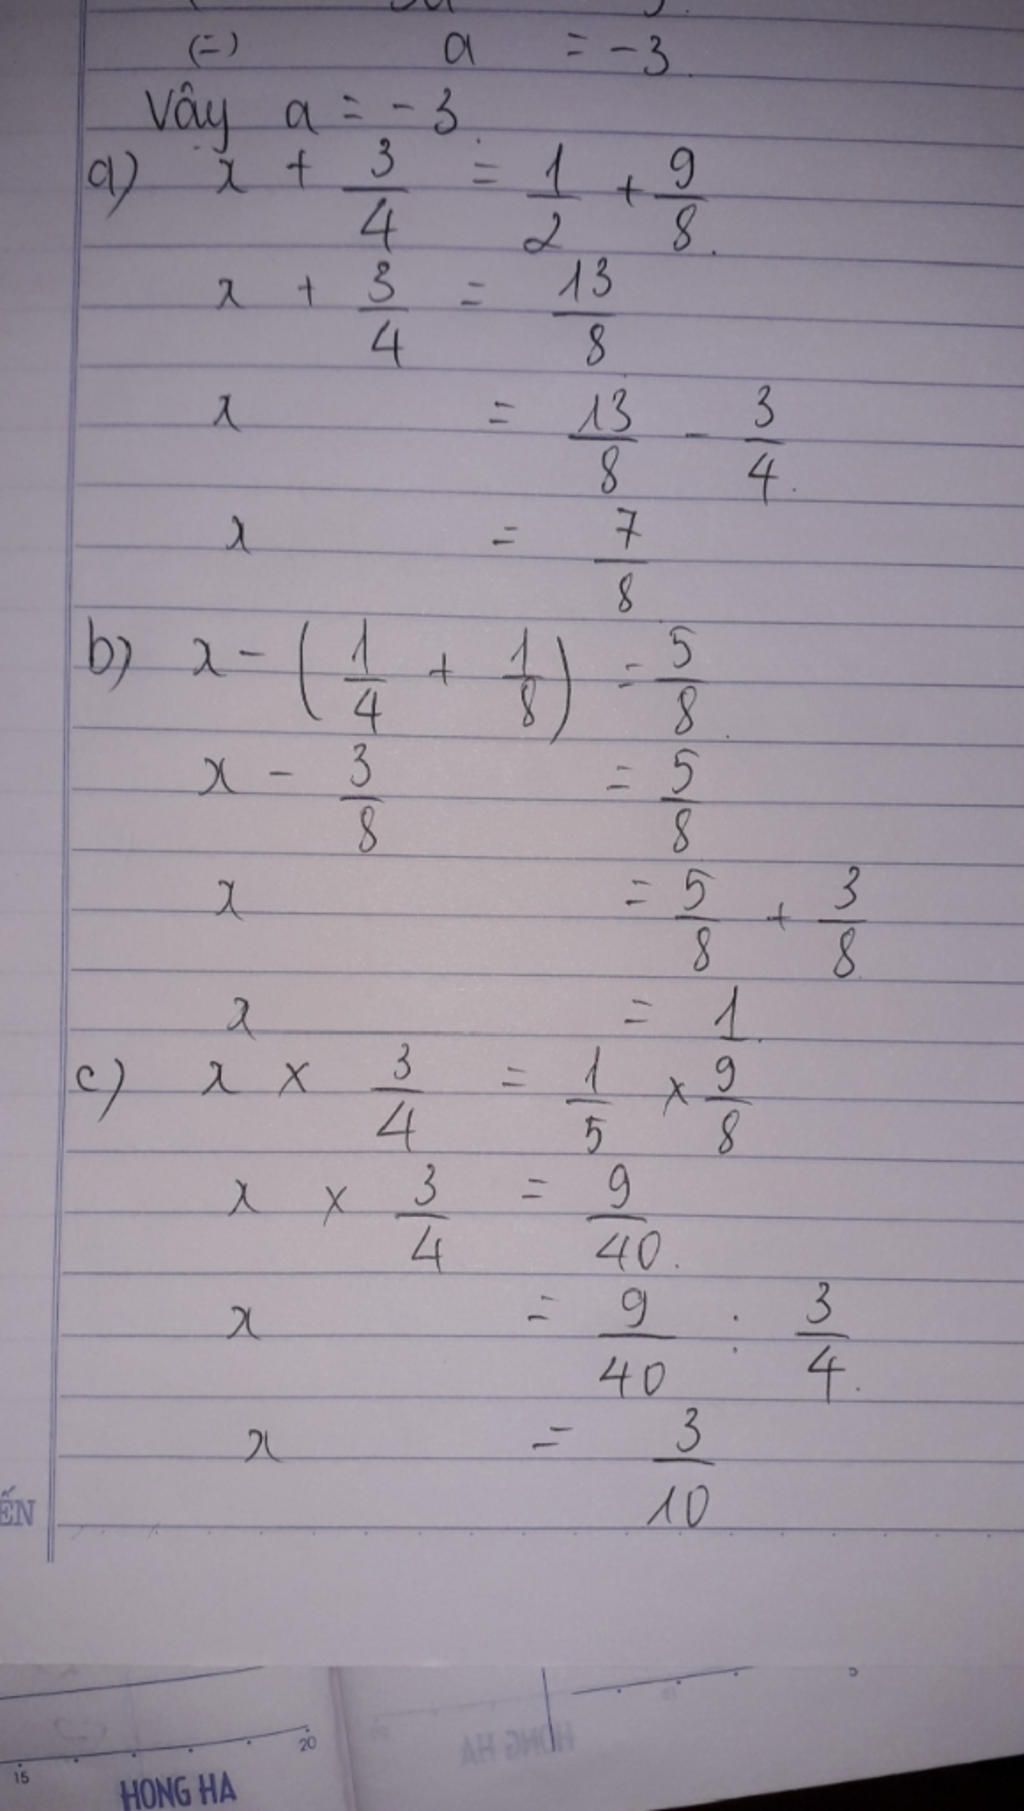 (=) a = -3.
Vậy a = -3.
a) x + 3/4 = 1/2 + 9/8.
x + 3/4 = 13/8
x = 13/8 - 3/4.
x = 7/8
b) x - (1/4 + 1/8) = 5/8.
x - 3/8 = 5/8
x = 5/8 + 3/8
x = 1.
c) x × 3/4 = 1/5 × 9/8
x × 3/4 = 9/40.
x = 9/40 : 3/4.
x = 3/10
ẾN
20
15
HONG HA
HONG HA